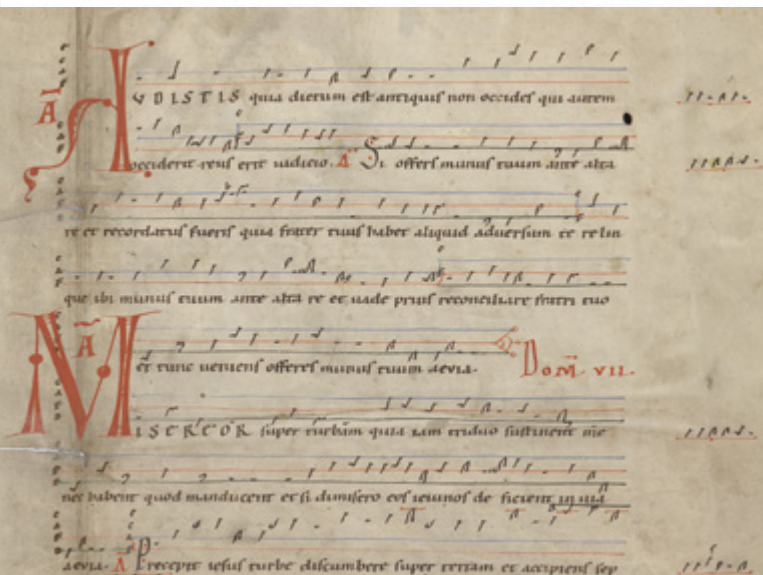 AUDISTIS quia dictum est antiquis non occides qui autem
occiderit reus erit iudicio. A Si offers munus tuum ante alta
re et recordatus fueris quia frater tuus habet aliquid adversum te relin
que ibi munus tuum ante alta re et uade prius reconciliare fratri tuo
A et tunc ueniens offeres munus tuum aevia. Dom̄. VII.
MISEREOR super turbam quia iam triduo sustinent me
nec habent quod manducent et si dimisero eos ieiunos deficient in uia
aevia. A Precepit iesus turbe discumbere super terram et accipiens sep